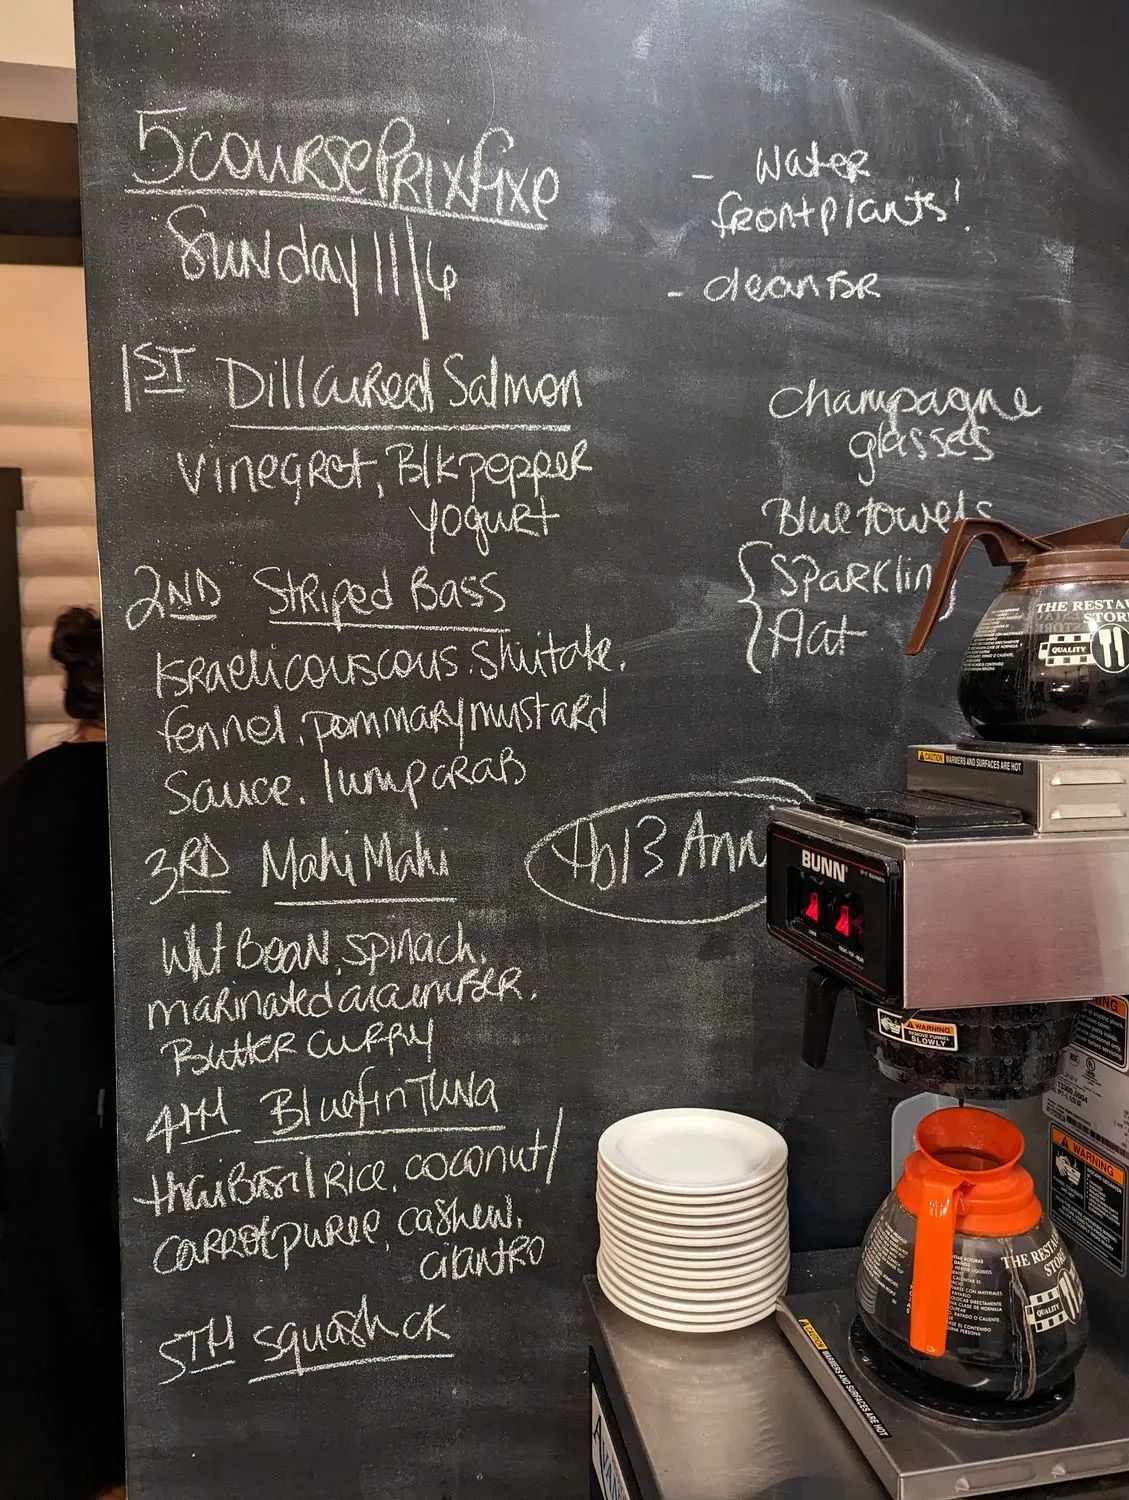 5 course Prix fixe
Sunday 11/6
1ST Dill cured Salmon
vinegret, Blk pepper
yogurt
2ND Striped Bass
Israeli couscous. Shiitake.
fennel. pommary mustard
Sauce. lump crab
3RD Mahi Mahi
Wht Bean. spinach.
marinated cucumber.
Butter curry
4TH Bluefin Tuna
thai Basil Rice. coconut/
carrot puree. cashew.
cilantro
5TH squash ck
- Water
front plants!
- cleanser
champagne
glasses
Blue towels
Sparklin
flat
tbl 3 Ann
THE RESTA
STOR
QUALITY
CAUTION WARMERS AND SURFACES ARE HOT
BUNN
WARNING
REMOVE FUNNEL
SLOWLY
WARNING
THE RESTA
STO
QUALITY
CAUTION WARMERS AND SURFACES ARE HOT